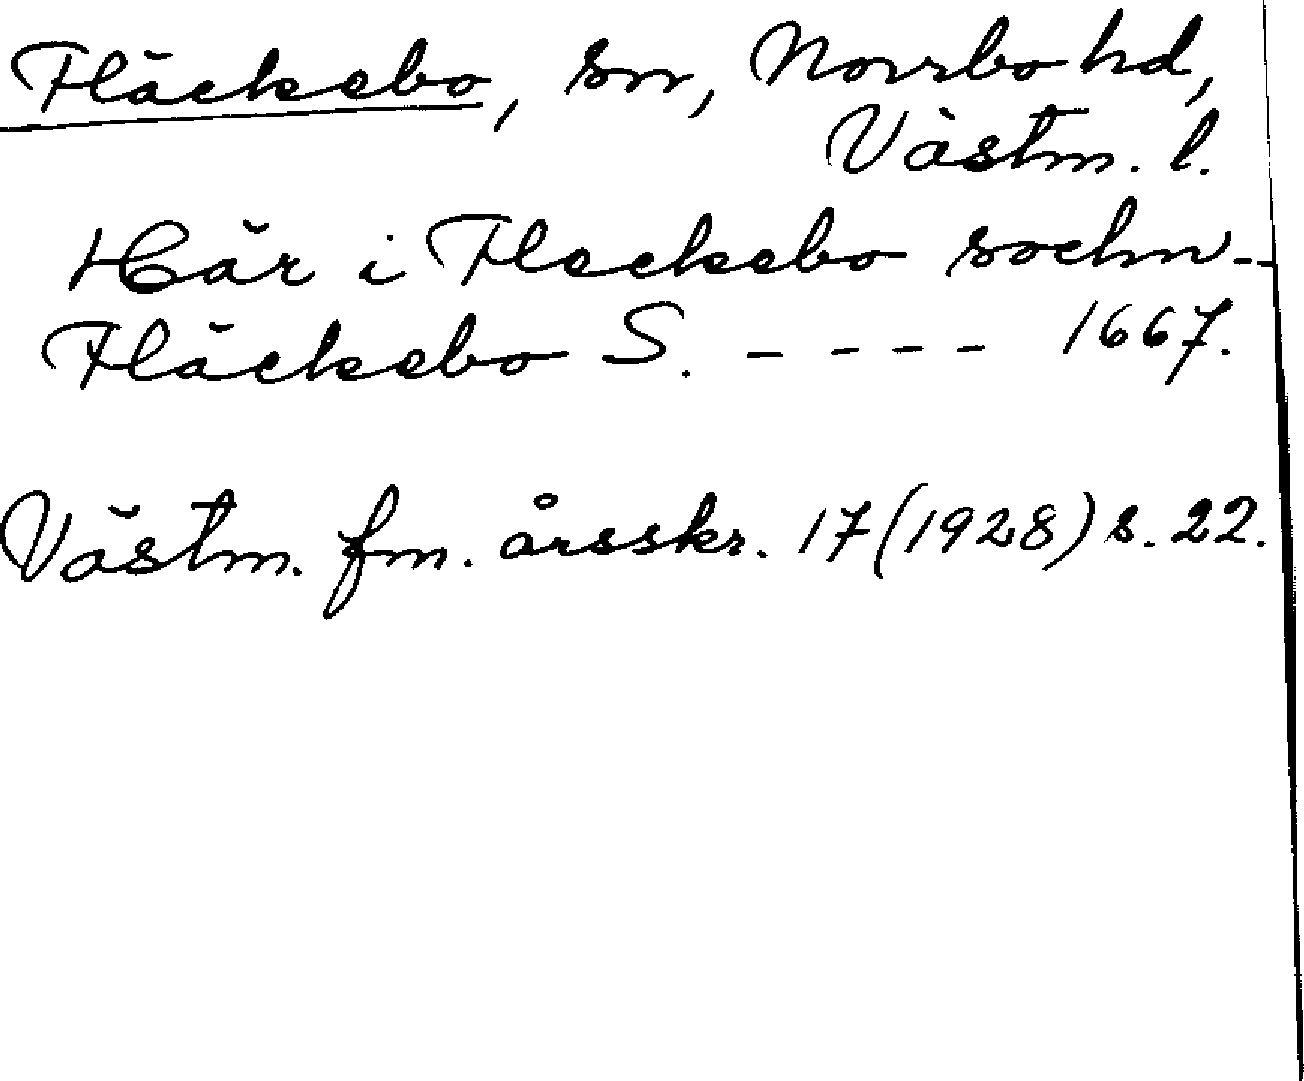 Fläckebo, sn, Norrbo hd,
Västm. l.
Här i Fleckebo sochn --
Fläckebo S. - - - - 1667.
Västm. fm. årsskr. 17 (1928) s. 22.